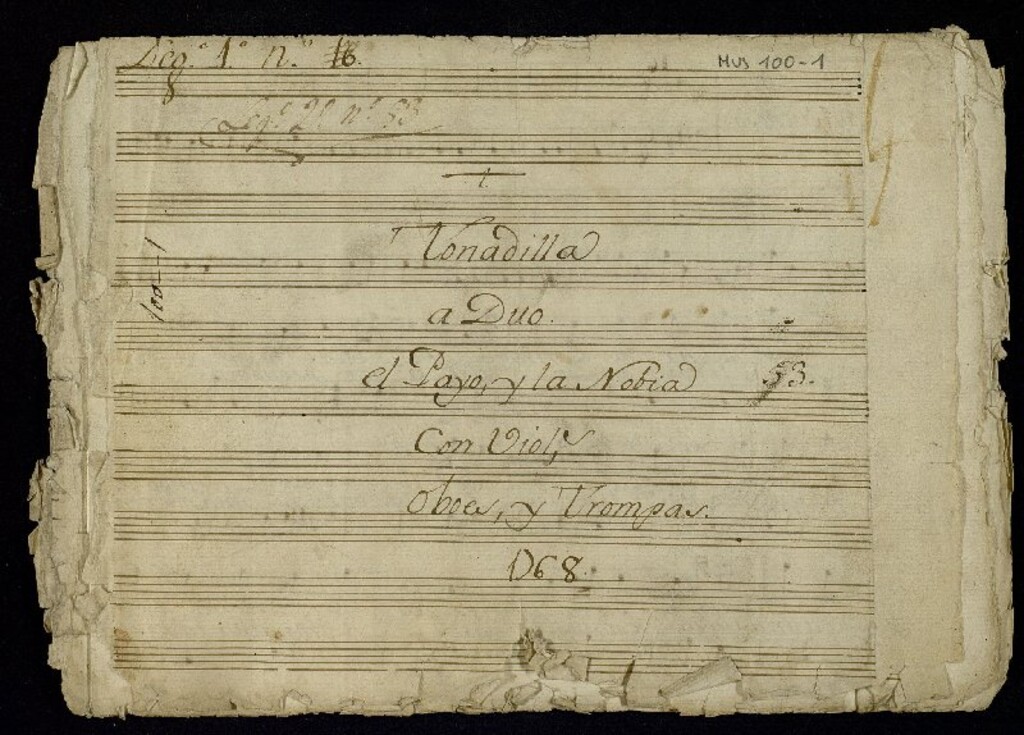 Leg.º 1.º n.º 16.
MUS 100-1
8
Leg.º 2º nº 53
1.
100-1
Tonadilla
a Duo.
el Payo, y la Nobia
53.
Con Viol.s
Oboes, y Trompas.
1768